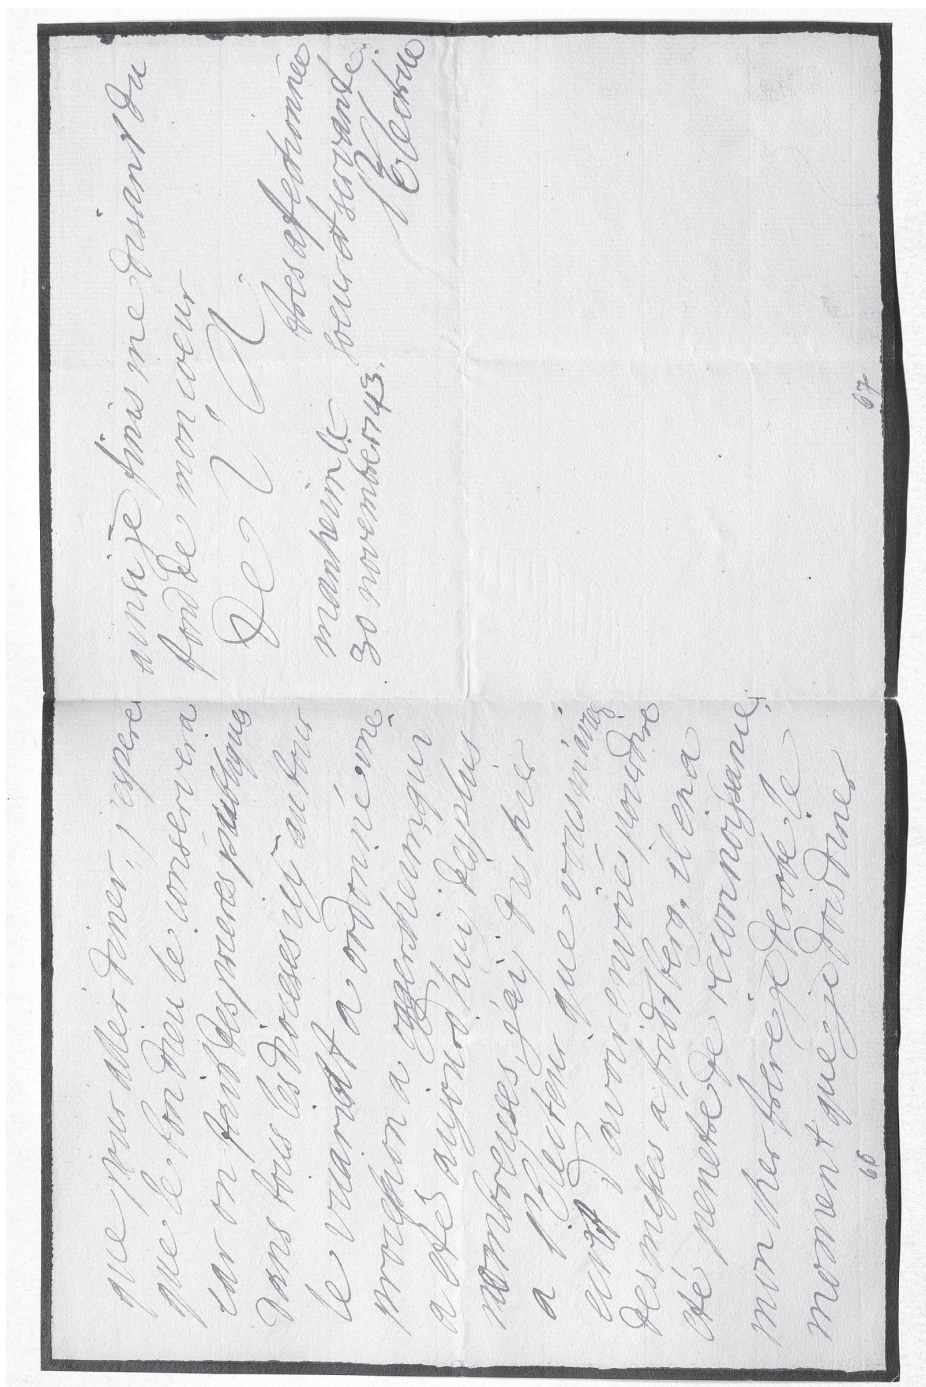 que pour aller diner, j'espere
que le bon dieu le conservera
car on fait des prieres publiques
dans tous les dioceses icy autour
le vicariat a ordonné une
procession a oggersheim, qui
a eté aujourd'hui des plus
nombreuses, j'ay dis hier
a l'Electeur que vous m'aviez
ecrit d'avoir envoié, pour dire
des messes a fridtberg, il en a
eté penetré de reconnoissance,
mon cher frere je derobe le
moment que je dois diner
68
ainsi je finis me disant du
fond de mon coeur
De V A
tres afectionnée
soeur et servante
l'Electrice
manheim le
30 novembre 1743.
67